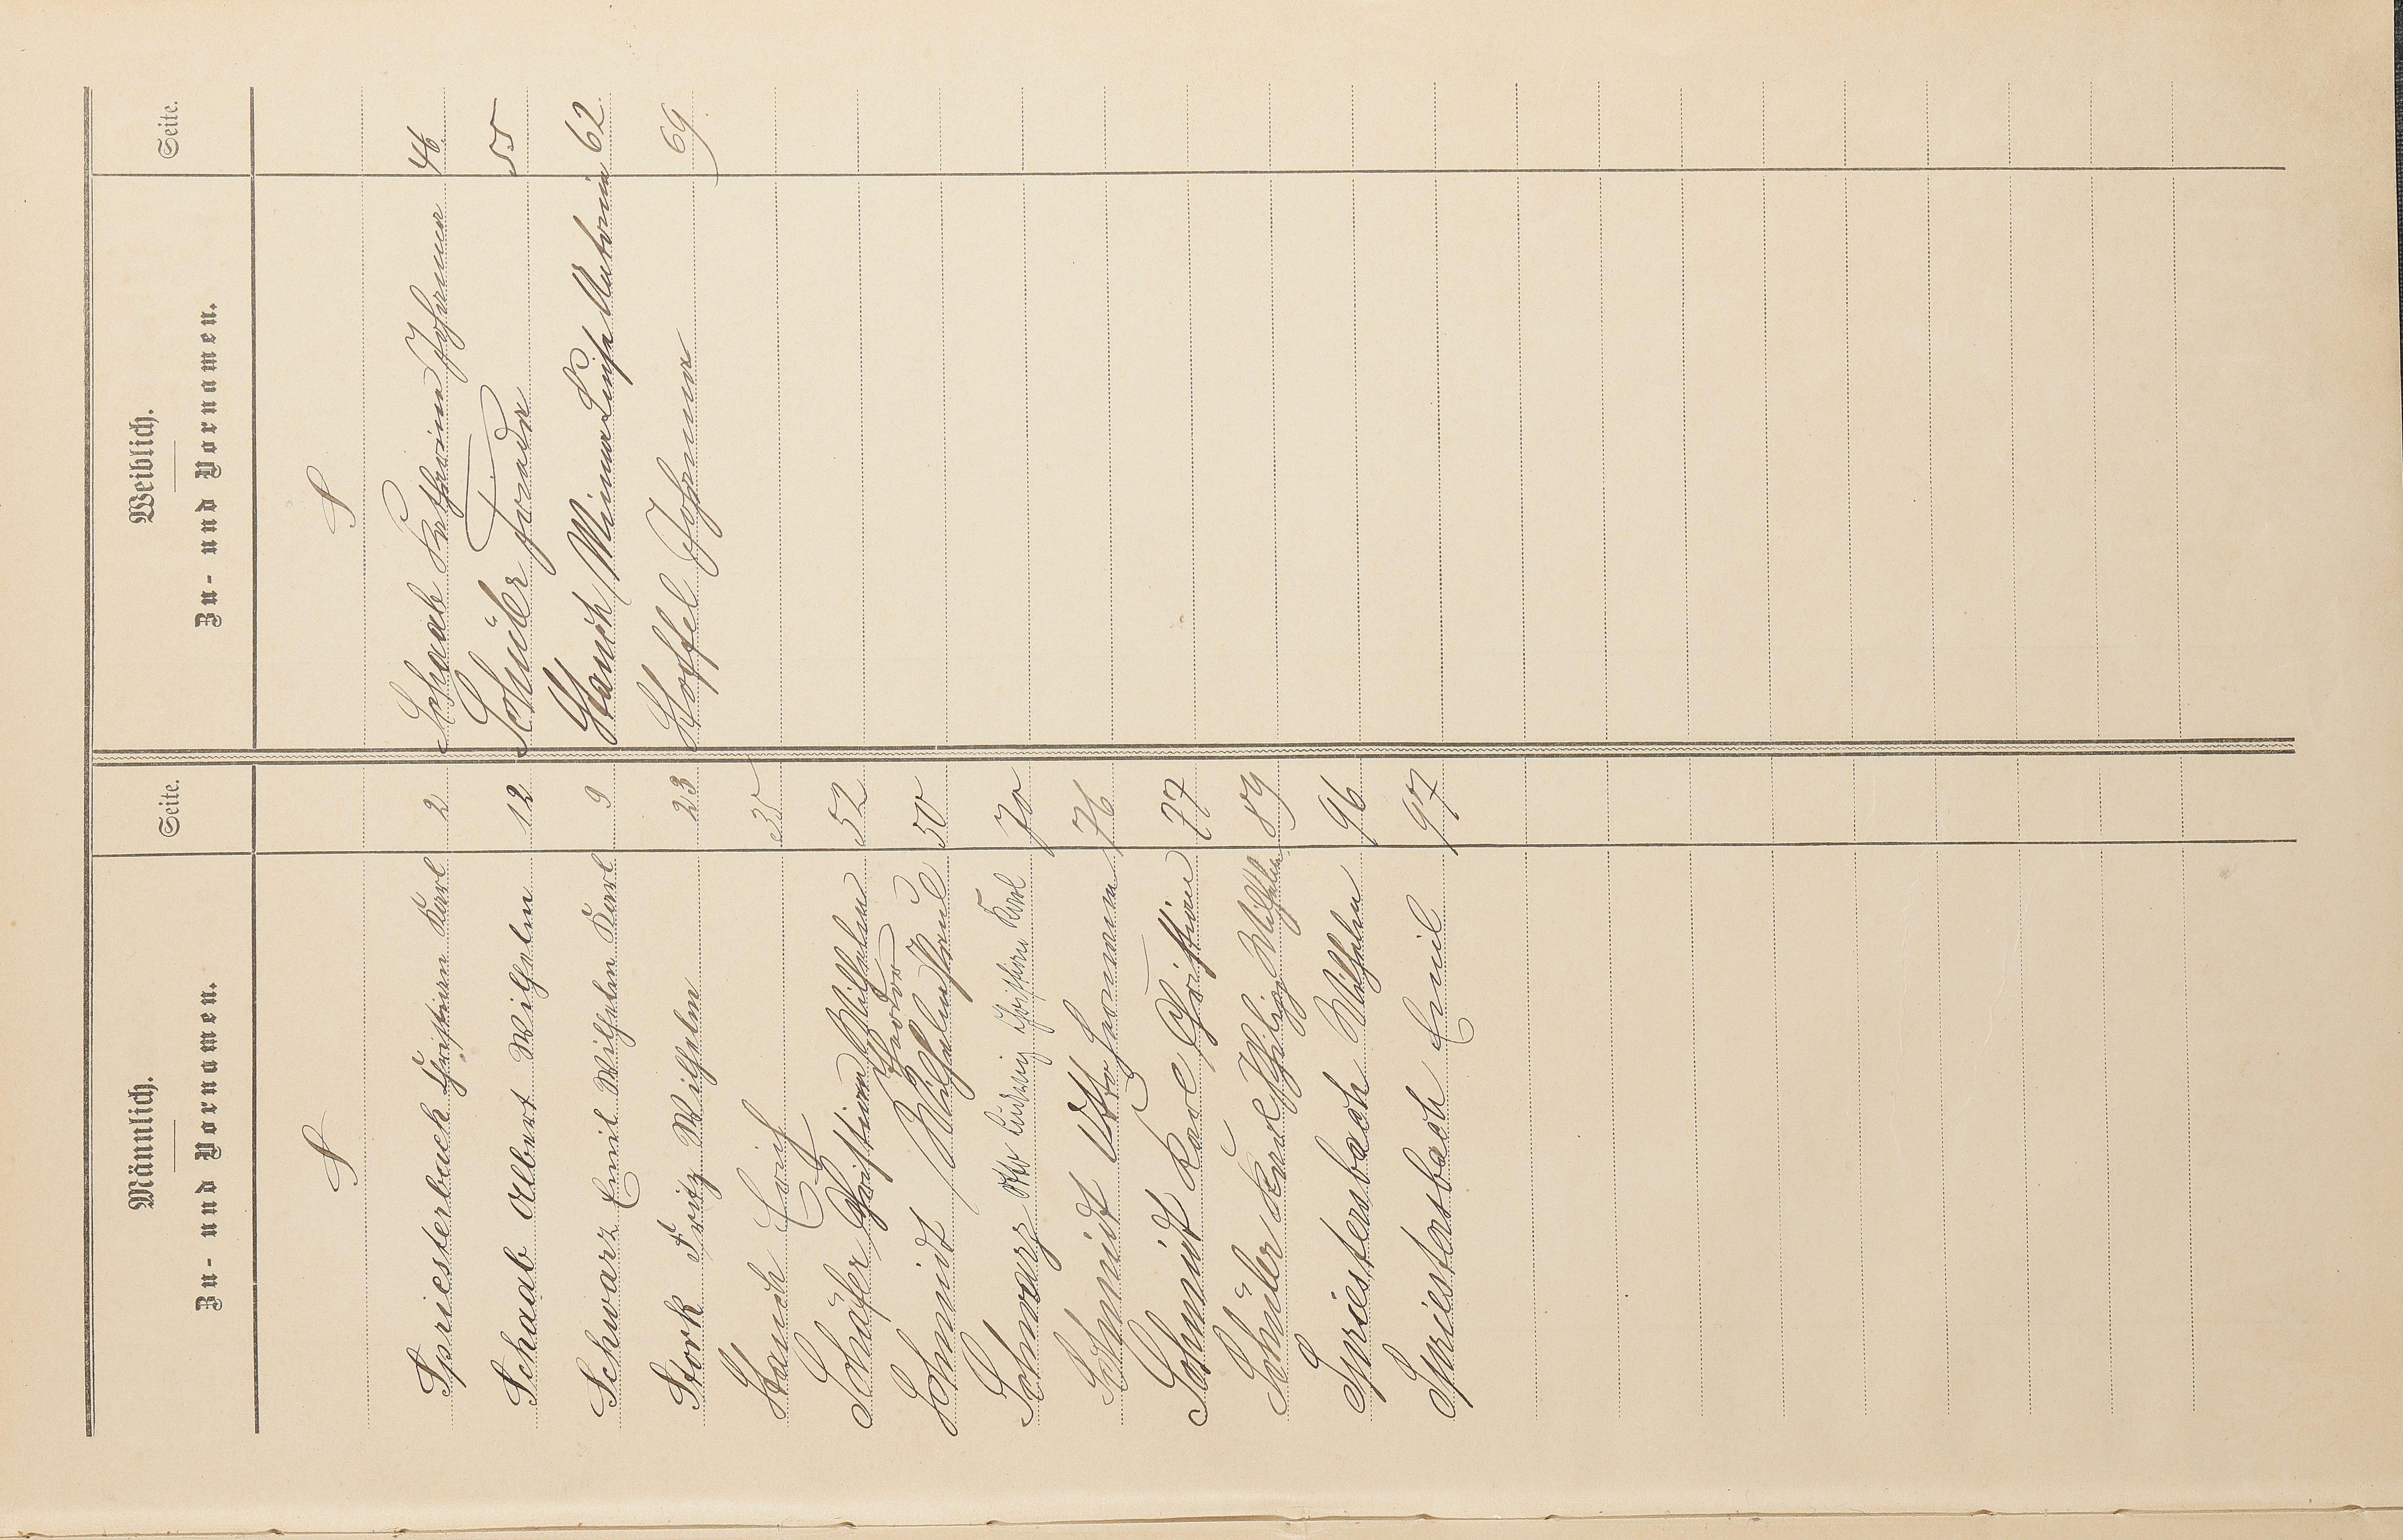 Männlich.
Zu- und Vornamen.
Seite.
Weiblich.
Zu- und Vornamen.
Seite.
S
S
Spriesterbach Christian Karl 2
Schaab Albert Wilhelm 12
Schwarz Emil Wilhelm Karl 9
Stork Fritz Wilhelm 23
Stauch Erich 35
Schäfer Christian Wilhelm Theodor 52
Schmidt Wilhelm Paul 50
Schwarz Otto Ludwig Christian Karl 70
Schmidt Otto Hermann 76
Schmidt Karl Christian 77
Schüler Karl Philipp Wilhelm 89
Spriestersbach Wilhelm 96
Spriestersbach Emil 97
Schaab Katharina Johanna 46
Schüler Frieda 55
Stauch Minna Luise Katharina 62
Stoffel Johanna 69